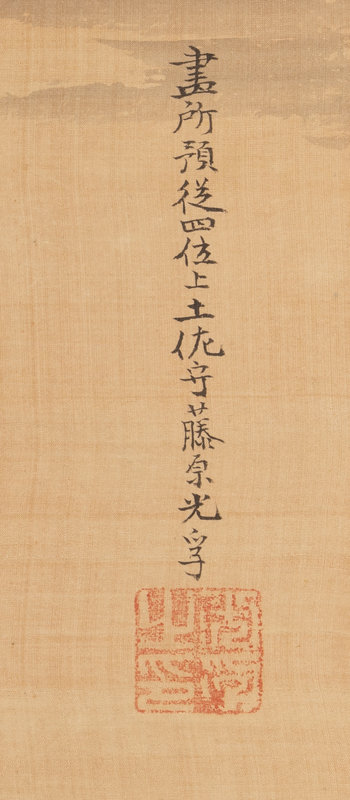 畫所預從四位上土佐守藤原光孚